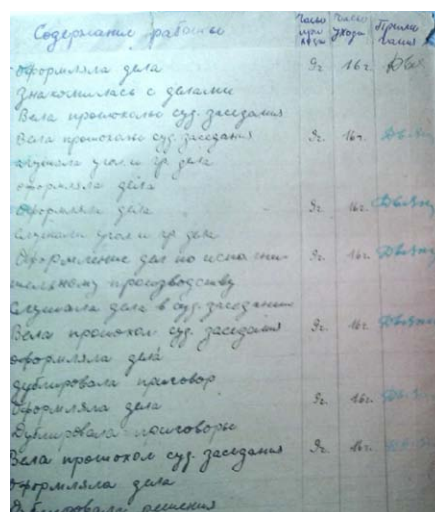 Содержание работы Часы прихода Часы ухода Примечания
оформляла дела 9ч. 16ч.
Знакомилась с делами
Вела протоколы суд. заседания
Вела протоколы суд. заседания 9ч. 16ч.
слушала угол и гр. дела
оформляла дела
Оформляла дела 9ч. 16ч.
Слушали угол и гр. дела
Оформление дел по исполни- 9ч. 16ч.
тельному производству
Слушала дела в суд. заседании
Вела протокол суд. заседания 9ч. 16ч.
оформляла дела
дублировала приговор
Оформляла дела 9ч. 16ч.
Дублировала приговоры
Вела протокол суд. заседания 9ч. 16ч.
Оформляла дела
Дублировала решения